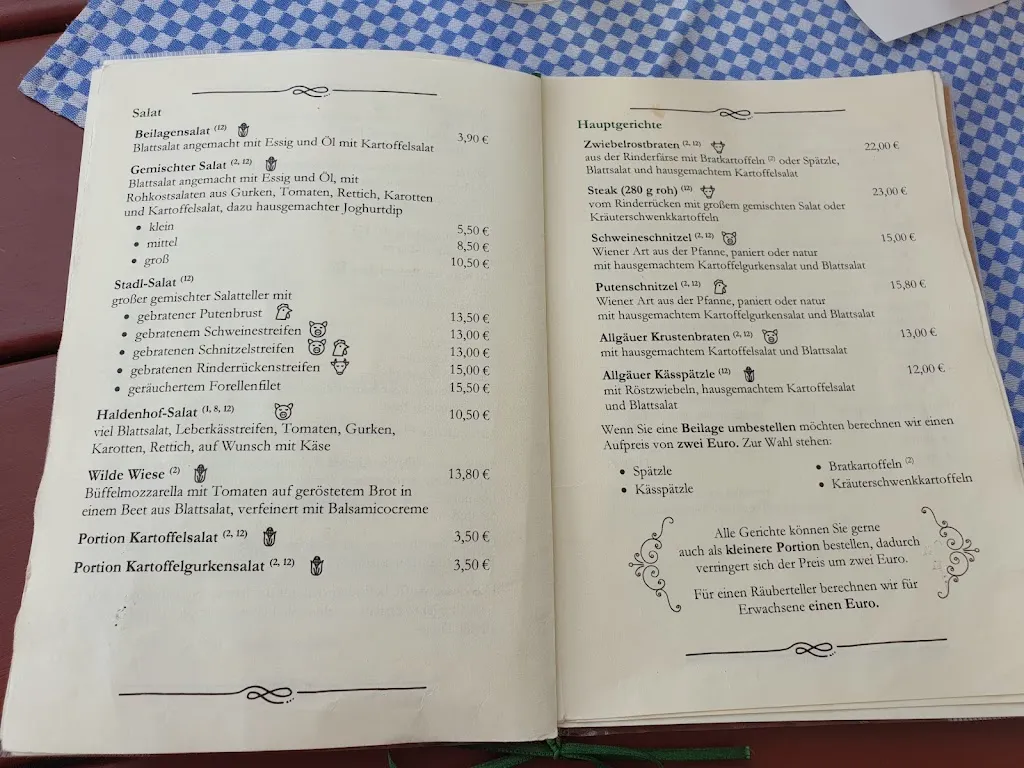 Salat
Beilagensalat (12) 3,90 €
Blattsalat angemacht mit Essig und Öl mit Kartoffelsalat
Gemischter Salat (2, 12)
Blattsalat angemacht mit Essig und Öl, mit
Rohkostsalaten aus Gurken, Tomaten, Rettich, Karotten
und Kartoffelsalat, dazu hausgemachter Joghurtdip
• klein 5,50 €
• mittel 8,50 €
• groß 10,50 €
Stadl-Salat (12)
großer gemischter Salatteller mit
• gebratener Putenbrust 13,50 €
• gebratenem Schweinestreifen 13,00 €
• gebratenen Schnitzelstreifen 13,00 €
• gebratenen Rinderrückenstreifen 15,00 €
• geräuchertem Forellenfilet 15,50 €
Haldenhof-Salat (1, 8, 12) 10,50 €
viel Blattsalat, Leberkässtreifen, Tomaten, Gurken,
Karotten, Rettich, auf Wunsch mit Käse
Wilde Wiese (2) 13,80 €
Büffelmozzarella mit Tomaten auf geröstetem Brot in
einem Beet aus Blattsalat, verfeinert mit Balsamicocreme
Portion Kartoffelsalat (2, 12) 3,50 €
Portion Kartoffelgurkensalat (2, 12) 3,50 €
Hauptgerichte
Zwiebelrostbraten (2, 12) 22,00 €
aus der Rinderfärse mit Bratkartoffeln (2) oder Spätzle,
Blattsalat und hausgemachtem Kartoffelsalat
Steak (280 g roh) (12) 23,00 €
vom Rinderrücken mit großem gemischten Salat oder
Kräuterschwenkkartoffeln
Schweineschnitzel (2, 12) 15,00 €
Wiener Art aus der Pfanne, paniert oder natur
mit hausgemachtem Kartoffelgurkensalat und Blattsalat
Putenschnitzel (2, 12) 15,80 €
Wiener Art aus der Pfanne, paniert oder natur
mit hausgemachtem Kartoffelgurkensalat und Blattsalat
Allgäuer Krustenbraten (2, 12) 13,00 €
mit hausgemachtem Kartoffelsalat und Blattsalat
Allgäuer Kässpätzle (12) 12,00 €
mit Röstzwiebeln, hausgemachtem Kartoffelsalat
und Blattsalat
Wenn Sie eine Beilage umbestellen möchten berechnen wir einen
Aufpreis von zwei Euro. Zur Wahl stehen:
• Spätzle
• Kässpätzle
• Bratkartoffeln (2)
• Kräuterschwenkkartoffeln
Alle Gerichte können Sie gerne
auch als kleinere Portion bestellen, dadurch
verringert sich der Preis um zwei Euro.
Für einen Räuberteller berechnen wir für
Erwachsene einen Euro.